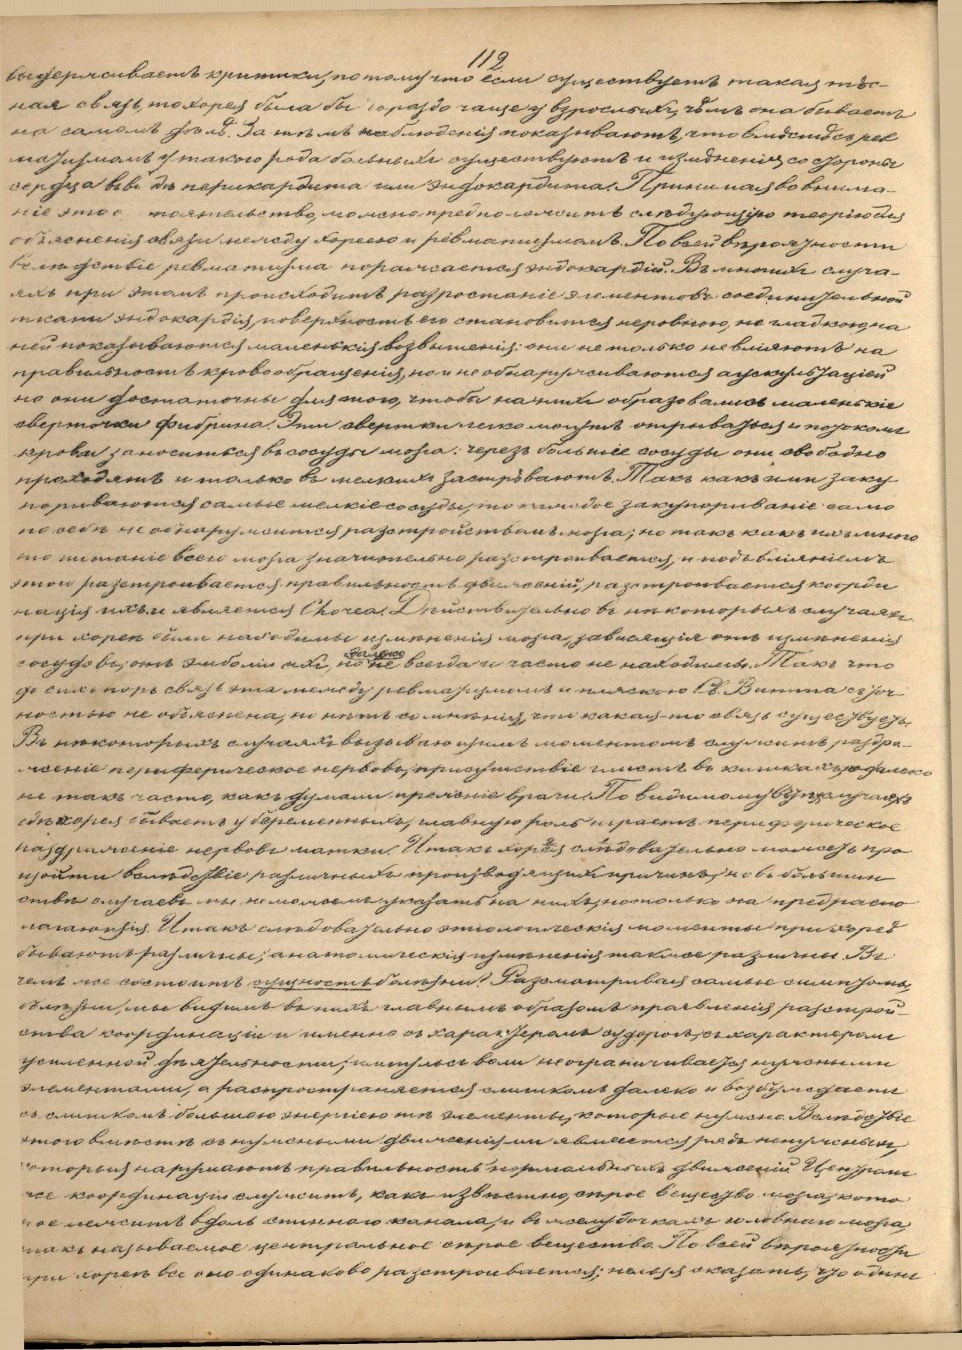 112
выдерживаетъ критики, потому что если существуетъ такая тѣс-
ная связь, то хорея была бы гораздо чаще у взрослыхъ, чѣмъ она бываетъ
на самомъ дѣлѣ. За тѣмъ наблюденія показываютъ, что вмѣстѣ съ рев
матизмомъ у такого рода больныхъ существуютъ и измѣненія со стороны
сердца въ видѣ перикардита или эндокардита. Принимая во внима-
ніе это тоятельство, можно предположить слѣдующую теорію для
объясненія связи между хореею и ревматизмомъ. По всей вѣроятности
вслѣдствіе ревматизма поражается эндокардій. Въ многихъ случа-
яхъ при этомъ происходитъ разростаніе элементовъ соединительной
ткани эндокардія, поверхность его становится неровною, не гладкою, на
ней показываются маленькія возвышенія: они не только не вліяютъ на
правильность кровообращенія, но и не обнаруживаются аускультаціей
но они достаточны для того, чтобы на нихъ образовались маленькіе
сверточки фибрина. Эти свертки легко могутъ отрываться и потокомъ
крови заноситься въ сосуды мозга: черезъ большіе сосуды они свободно
проходятъ и только въ мелкихъ застрѣваютъ. Такъ какъ ими заку
пориваются самые мелкіе сосуды, то таковое закупориваніе само
по себѣ не обнаружится разстройствомъ мозга; но такъ какъ ихъ много
то питаніе всего мозга значительно разстроивается, и подъ вліяніемъ
этого разстроивается правильность движеній, разстроивается коорди
нація ихъ и является Chorea. Дѣйствительно въ нѣкоторыхъ случаяхъ
при хореѣ были находимы измѣненія мозга, зависящія отъ измѣненія
сосудовъ, отъ эмболіи ихъ, но далеко не всегда и часто не находимы. Такъ что
до сихъ поръ связь эта между ревматизмомъ и пляскою Св. Витта съ точ
ностью не объяснена, но нѣтъ сомнѣнія, что какая-то связь существуетъ.
Въ нѣкоторыхъ случаяхъ вызывающимъ моментомъ служитъ раздра-
женіе периферическое нервовъ, присутствіе глистъ въ кишкахъ, но далеко
не такъ часто, какъ думали прежніе врачи. По видимому въ тѣхъ случаяхъ
гдѣ хорея бываетъ у беременныхъ, главную роль играетъ периферическое
раздраженіе нервовъ матки. Итакъ хорея слѣдовательно можетъ про
изойти вслѣдствіе различныхъ производящихъ причинъ, но въ большин
ствѣ случаевъ мы не можемъ указать на нихъ, но только на предраспо
лагающія. Итакъ слѣдовательно этіологическія моменты при хореѣ
бываютъ различны; анатомическія измѣненія также различны. Въ
чемъ же состоитъ сущность болѣзни? Разсматривая самые симптомы
болѣзни, мы видимъ въ нихъ главнымъ образомъ проявленія разстрой-
ства координаціи и именно съ характеромъ судорогъ, съ характеромъ
усиленной дѣятельности; импульсъ воли не ограничивается нужными
элементами, а распространяется слишкомъ далеко и возбуждаетъ
съ слишкомъ большою энергіею тѣ элементы, которые нужно. Вслѣдствіе
этого вмѣстѣ съ нужными движеніями является рядъ ненужныхъ,
которыя нарушаютъ правильность нормальныхъ движеній. Центромъ
же координаціи служитъ, какъ извѣстно, сѣрое вещество мозга, кото
рое лежитъ вдоль спиннаго канала, и въ желудочкахъ головнаго мозга,
такъ называемое центральное сѣрое вещество. По всей вѣроятности
при хореѣ все оно одинаково разстроивается; нельзя сказать, что одинъ